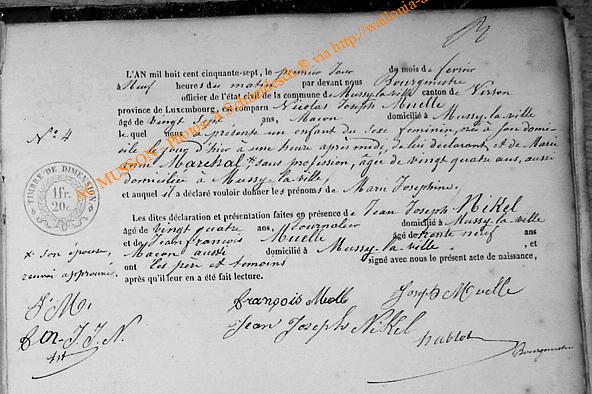 L'AN mil huit cent cinquante-sept, le premier jour du mois de fevrier
à Neuf heures du matin par devant nous Bourgmestre
officier de l'état civil de la commune de Mussy-la-ville canton de Virton
province de Luxembourg, est comparu Nicolas Joseph Muelle
âgé de vingt sept ans, Maçon domicilié à Mussy-la-ville
N° 4
le quel nous a présenté un enfant du sexe feminin, née à son domi-
cile le jour d'hier à une heure après midi, de lui déclarant, et de Marie
Anne Marechal, sans profession, agée de vingt quatre ans, aussi
domiciliée à Mussy-la-ville,
et auquel il a déclaré vouloir donner les prénoms de Marie Josephine.
TIMBRE DE DIMENSION
1fr.
20.
Les dites déclaration et présentation faites en présence de Jean Joseph Nikel
âgé de vingt quatre ans, Journalier domicilié à Mussy-la-ville
et de Jean françois Muelle âgé de trente neuf ans
Maçon aussi domicilié à Mussy-la-ville, et
× son épouse,
renvoi approuvé.
ont les père et temoins signé avec nous le présent acte de naissance,
après qu'il leur en a été fait lecture.
J. M.
J. J. N.
françois Muelle Joseph Muelle
Jean Joseph Nikel
Bourgmestre
MUSSON Photos A Schneider via http://wallonia-a